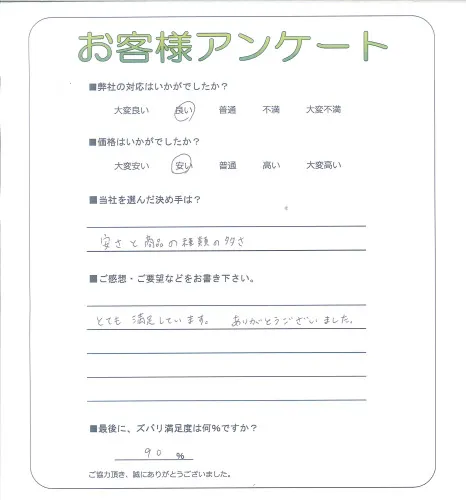 お客様アンケート
■弊社の対応はいかがでしたか？
大変良い 良い 普通 不満 大変不満
■価格はいかがでしたか？
大変安い 安い 普通 高い 大変高い
■当社を選んだ決め手は？
安さと商品の種類の多さ
■ご感想・ご要望などをお書き下さい。
とても満足しています。 ありがとうございました。
■最後に、ズバリ満足度は何％ですか？
90 ％
ご協力頂き、誠にありがとうございました。